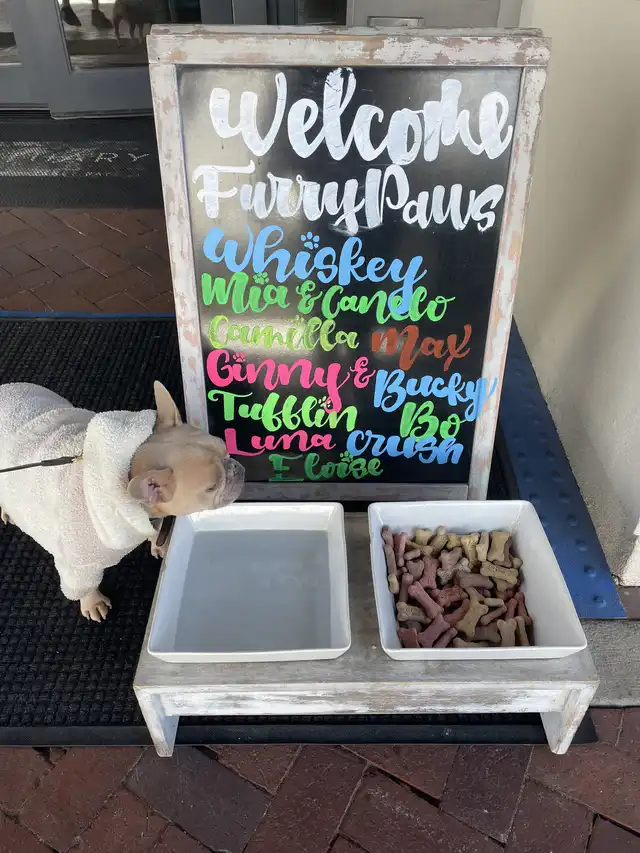 Welcome
Furry Paws
Whiskey
Mia & Canelo
Camilla Max
Ginny & Bucky
Tufflin Bo
Luna Crush
Eloise